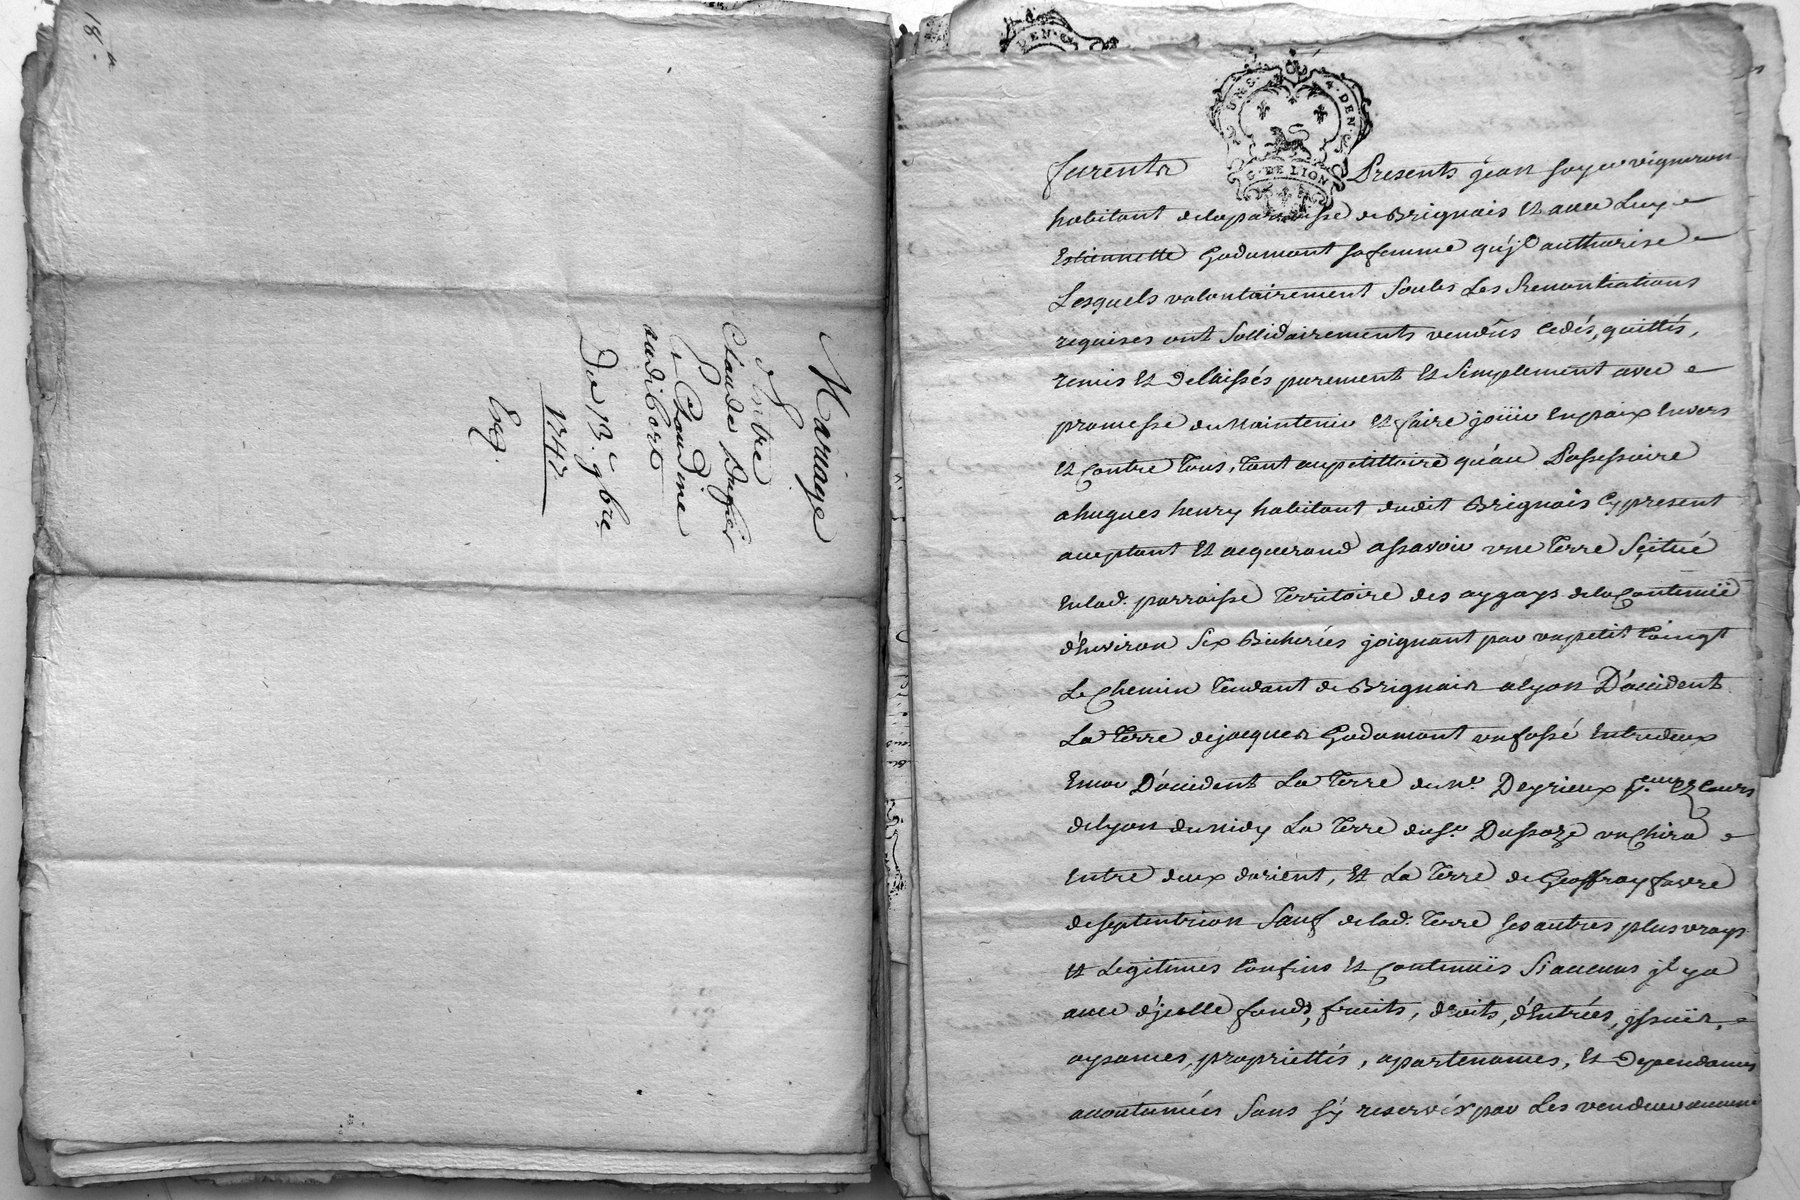 18.a
Mariage
d'Entre
Claude Dupré
& Claudine
audibert
Du 13.e 9bre
1747
Exp.
4 DEN.
G. DE LION
furentz Presents jean soyeu vigneron
habitant dela parroisse de Brignais et avec Luy
Estiennette Gadumont sa femme qu'jl authorise
Lesquels volontairement soubs Les Renontiations
requises ont sollidairements vendus cedés, quittés,
remis et delaissés purement et simplement avec
promesse de Maintenir et faire jouir en paix Envers
et Contre Tous, tant au petittoire qu'au Possessoire
a hugues henry habitant dudit Brignais Cy present
aceptant et acquerand assavoir une Terre Scitué
En lad. parroisse Territoire des aygays dela Contenuë
d'Environ Six Bicherées joignant par un petit Coingt
Le Chemin Tendant de Brignais a lyon D'occident
La Terre de jacques Gadumont un fossé Entredeux
Encor D'occident La Terre du Sr. Deyrieux et Cours
de lyon du midy La Terre du Sr. Dussoze un Chira
Entre deux d'orient, et La Terre de Geoffray favre
de septentrion Sauf de lad. Terre ses autres plus vrays
et Legitimes Confins et Contenuës si aucuns jl y a
avec d'jcelle fonds, fruits, droits, d'Entrées, jssuës,
aysances, propriettés, apartenances, et Dependances
acoutumées Sans s'y reserver par Les vendeurs aucune